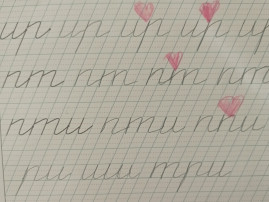 ир ир ир ир ир
пт пт пт пт
пти пти
ри ши три